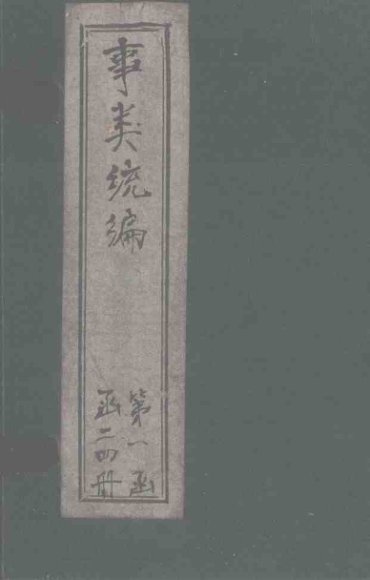 事类统编
第一函
函二四册